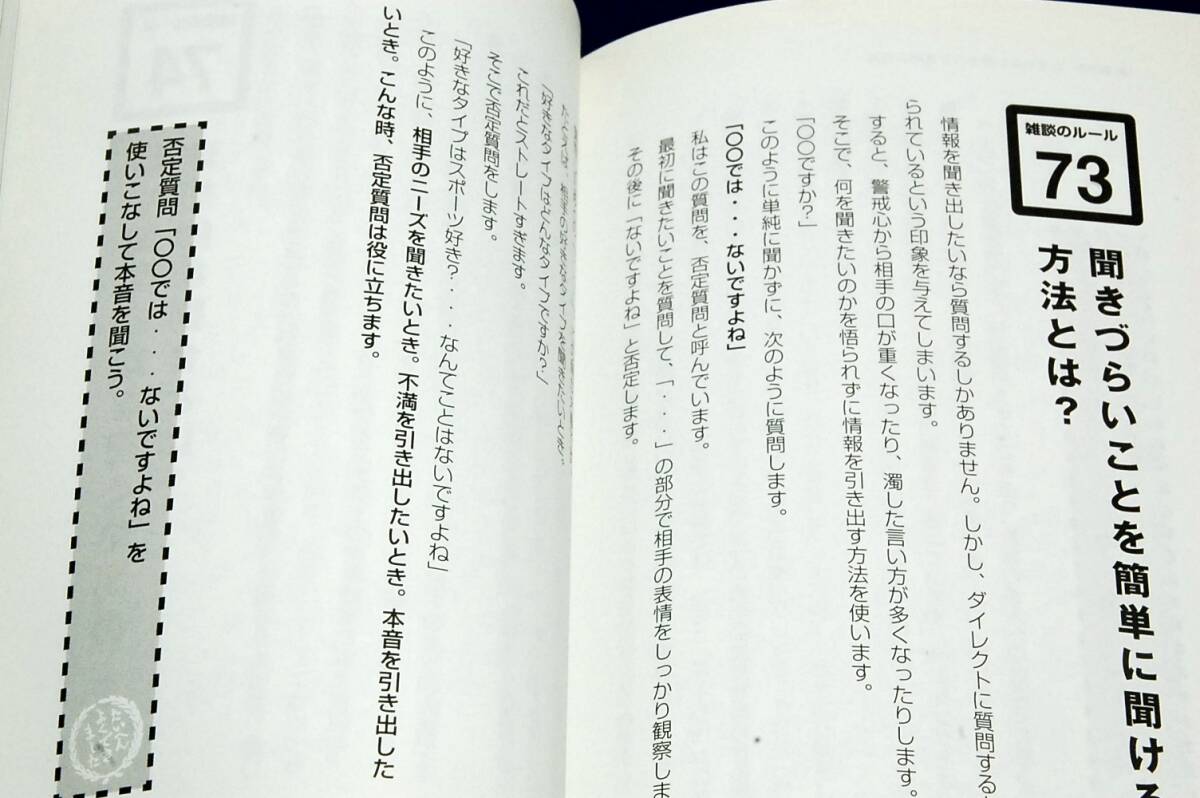 雑談のルール
73
聞きづらいことを簡単に聞ける
方法とは?
情報を聞き出したいなら質問するしかありません。しかし、ダイレクトに質問する
られているという印象を与えてしまいます。
すると、警戒心から相手の口が重くなったり、濁した言い方が多くなったりします。
そこで、何を聞きたいのかを悟られずに情報を引き出す方法を使います。
「〇〇ですか?」
このように単純に聞かずに、次のように質問します。
「〇〇では・・・ないですよね」
私はこの質問を、否定質問と呼んでいます。
最初に聞きたいことを質問して、「・・・」の部分で相手の表情をしっかり観察しま
その後に「ないですよね」と否定します。
たとえば、相手の好きなタイプを聞きたいとき。
「好きなタイプはどんなタイプですか?」
これだとストレートすぎます。
そこで否定質問をします。
「好きなタイプはスポーツ好き?・・・なんてことはないですよね」
このように、相手のニーズを聞きたいとき。不満を引き出したいとき。本音を引き出した
いとき。こんな時、否定質問は役に立ちます。
否定質問「〇〇では・・・ないですよね」を
使いこなして本音を聞こう。
74